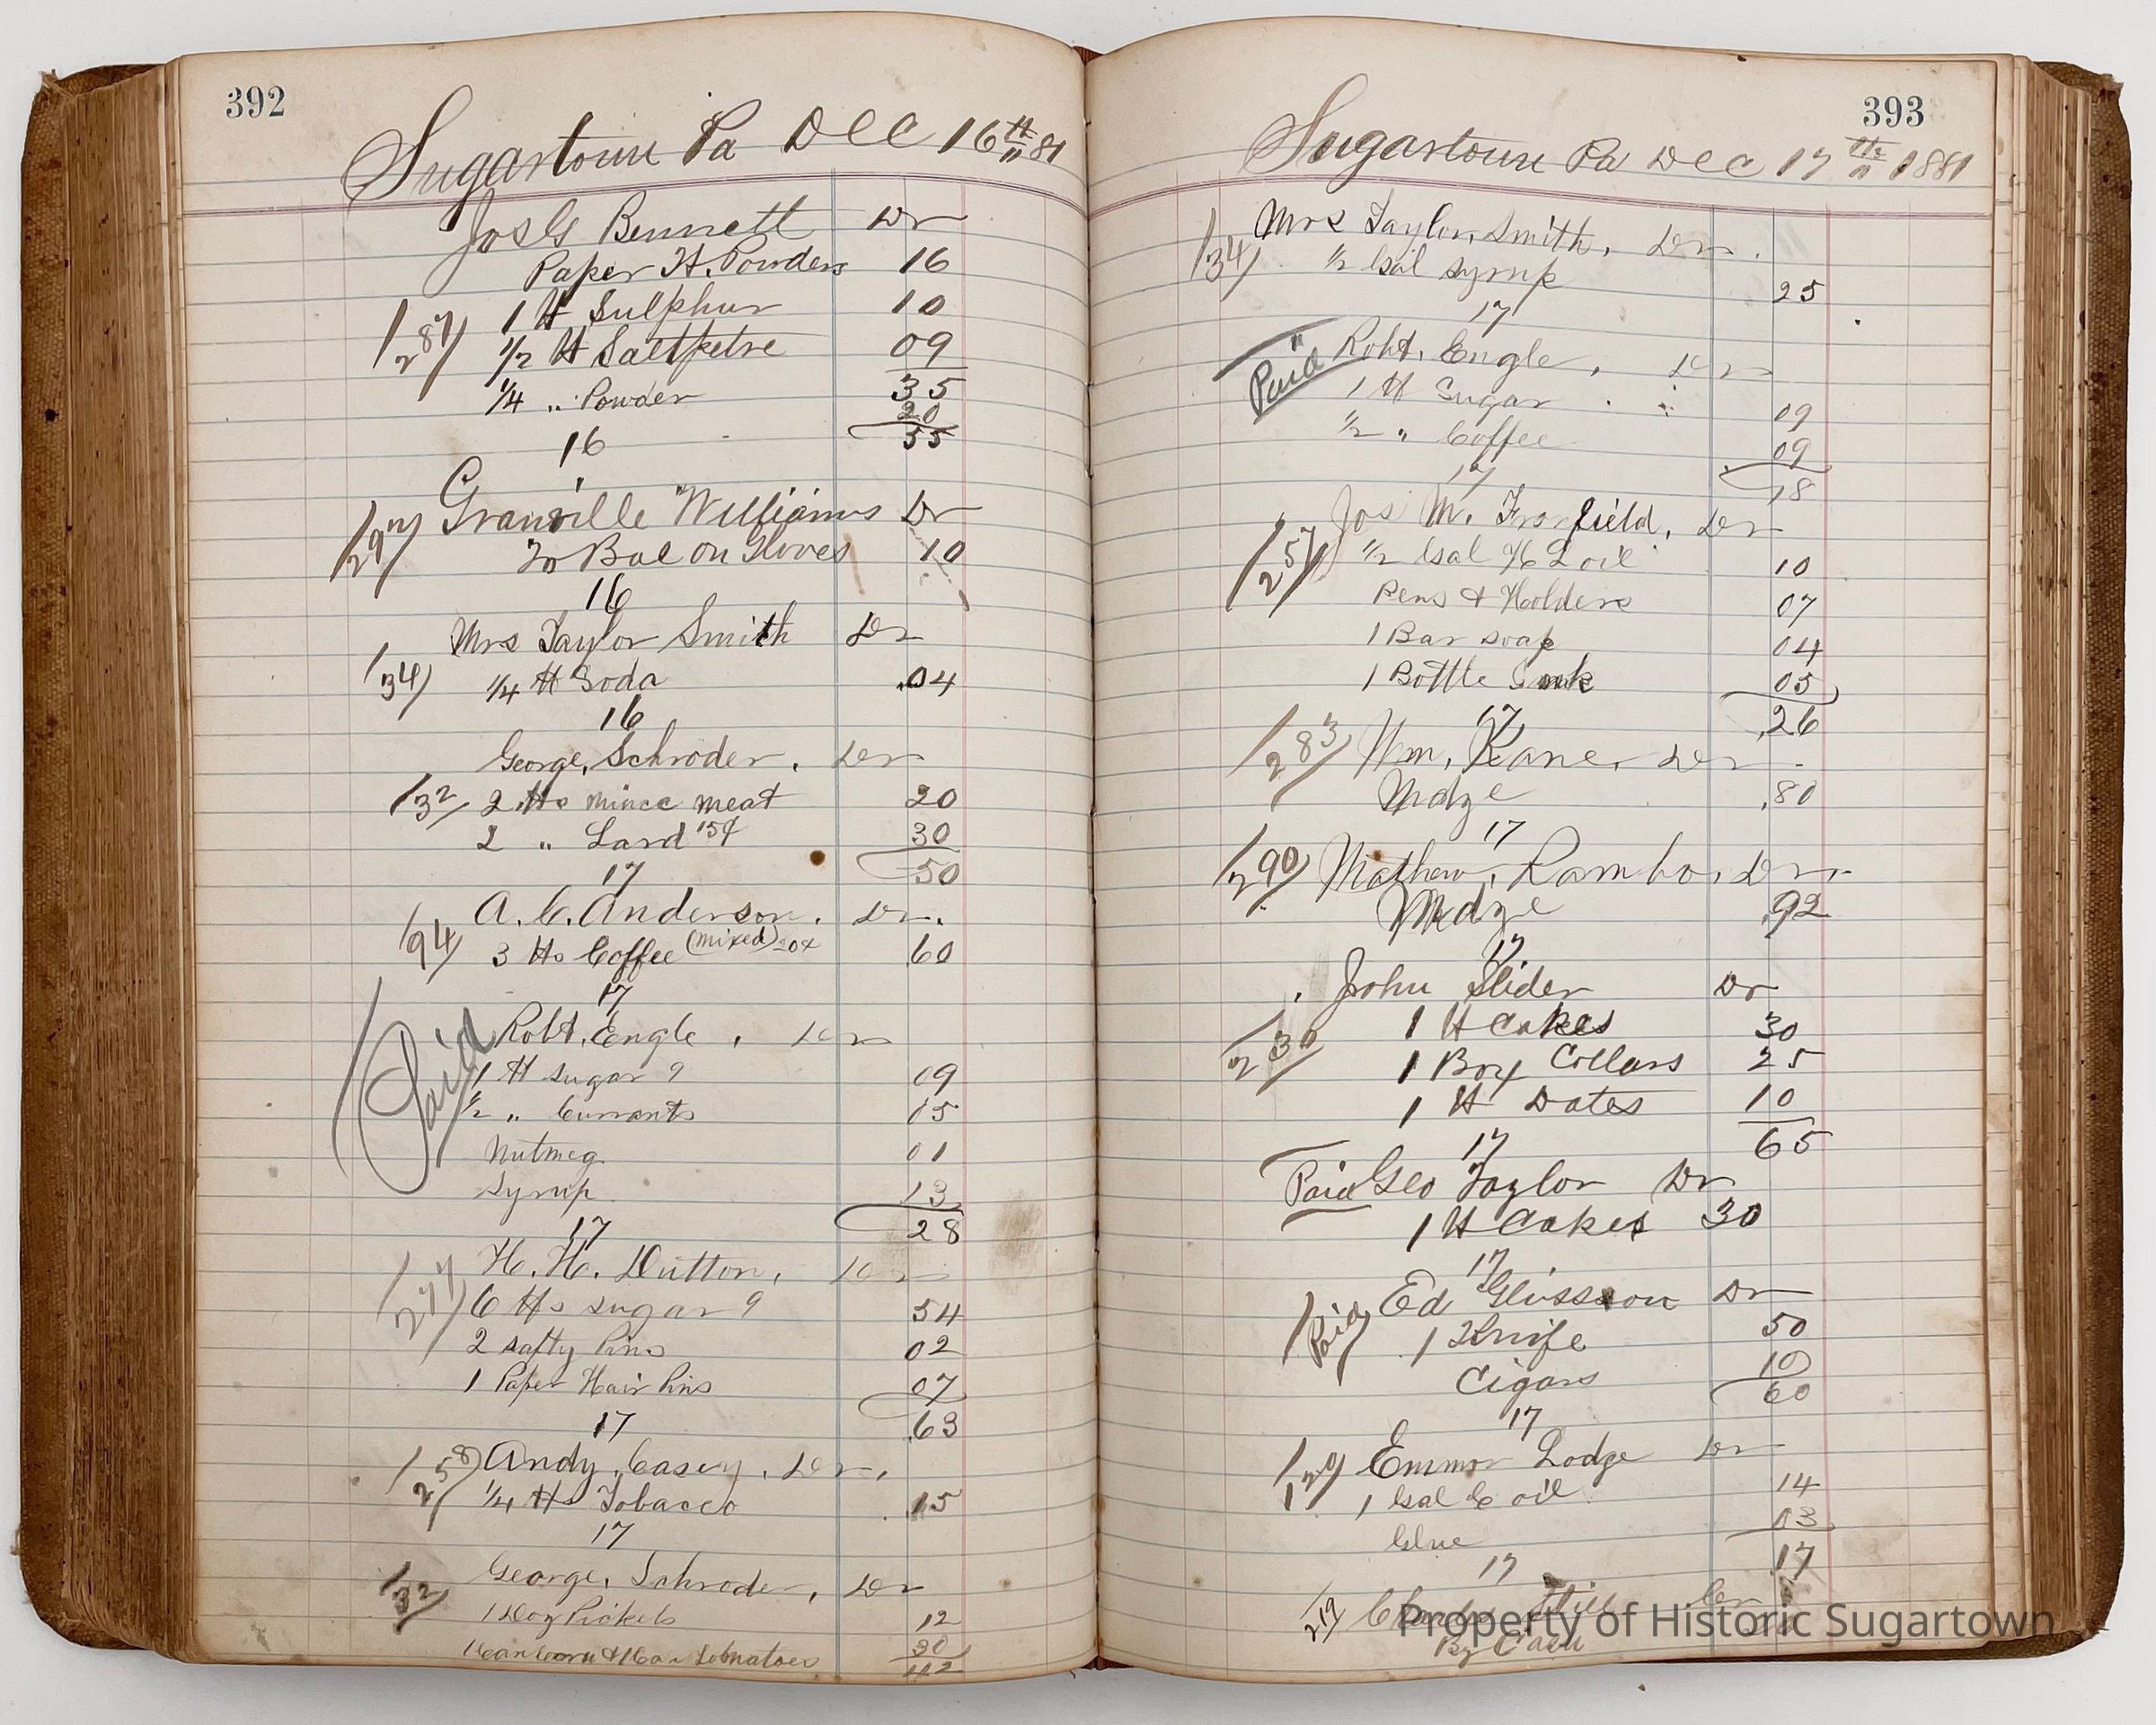 392
Sugartown Pa Dec 16th 81
Jos G Bennett Dr
Paper H. Powders 16
1 ℔ Sulphur 10
287 1/2 ℔ Saltpetre 09
35
1/4 " Powder 20
55
16
Granville Williams Dr
297 To Bal on Gloves 10
16
Mrs Taylor Smith Dr
34 1/4 ℔ Soda .04
16
George, Schroder, Dr
32 2 ℔s mince meat 20
2 " Lard 15¢ 30
50
17
A. C. Anderson. Dr.
94 3 ℔s Coffee (mixed) 20¢ 60
17
Paid Robt. Engle, Dr
1 ℔ sugar 9 09
1/2 " Currants 05
Nutmeg 01
Syrup 13
28
17
H. H. Dutton, Dr
277 6 ℔s sugar 9 54
2 safty Pins 02
1 Paper Hair Pins 07
63
17
258 Andy Casey, Dr,
1/4 ℔s Tobacco 15
17
George, Schroder, Dr
32 1 Doz Pickels 12
1 Can Corn & 1 Can Tomatoes 30
42
393
Sugartown Pa Dec 17th 1881
Mrs Taylor, Smith, Dr.
34 1/2 Gal syrup 25
17
Paid Robt. Engle, Dr
1 ℔ Sugar 09
1/2 " Coffee 09
18
17
Jos M. Fronfield, Dr
257 1/2 Gal H L oil 10
Pens & Holders 07
1 Bar soap 04
1 Bottle Ink 05
26
17
283 Wm, Kane, Dr
Mdze .80
17
290 Mathew, Rambo, Dr
Mdze .92
17
John Slider Dr
230 1 ℔ Cakes 30
1 Box Collars 25
1 ℔ Dates 10
65
17
Paid Geo Taylor Dr
1 ℔ Cakes 30
17
Paid Ed Dr
1 Knife 50
Cigars 10
60
17
129 Emmor Lodge Dr
1 Gal C oil 14
Glue 03
17
17
219 Cr
By Cash
Property of Historic Sugartown